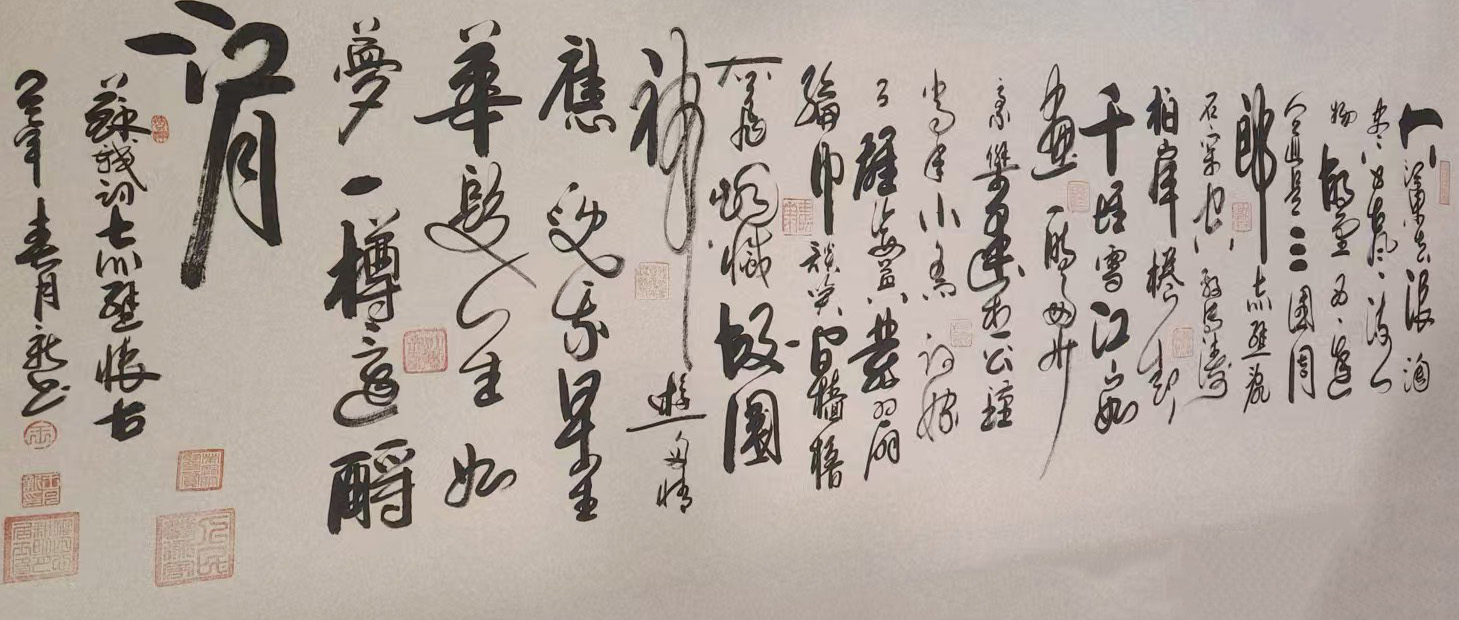 大江東去浪淘
盡千古風流人
物故壘西邊
人道是三國周
郎赤壁亂
石穿空驚濤
拍岸捲起
千堆雪江山如
畫一時多少
豪傑遙想公瑾
當年小喬初嫁
了雄姿英發羽扇
綸巾談笑間檣櫓
灰飛煙滅故國
神遊多情
應笑我早生
華髮人生如
夢一樽還酹
江月
蘇軾詞赤壁懷古
年春月新書